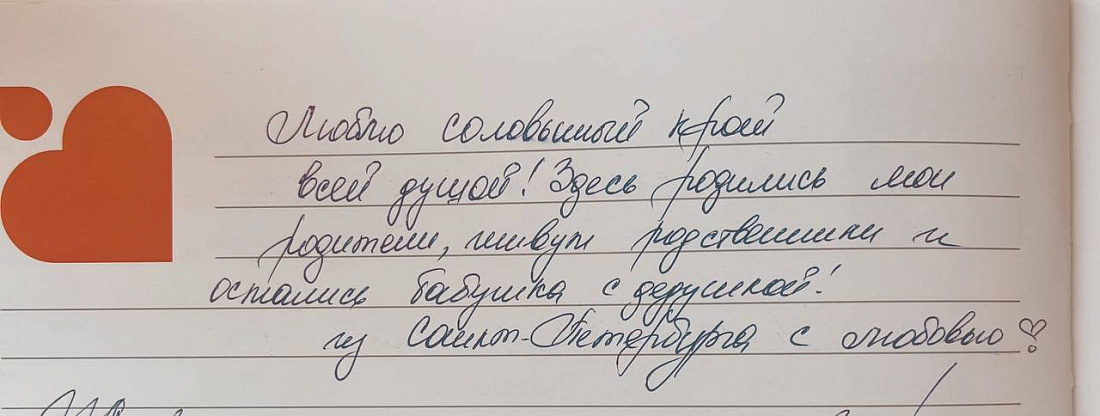 Люблю соловьиный край
всей душой! Здесь родились мои
родители, живут родственники и
остались бабушка с дедушкой!
из Санкт-Петербурга с любовью